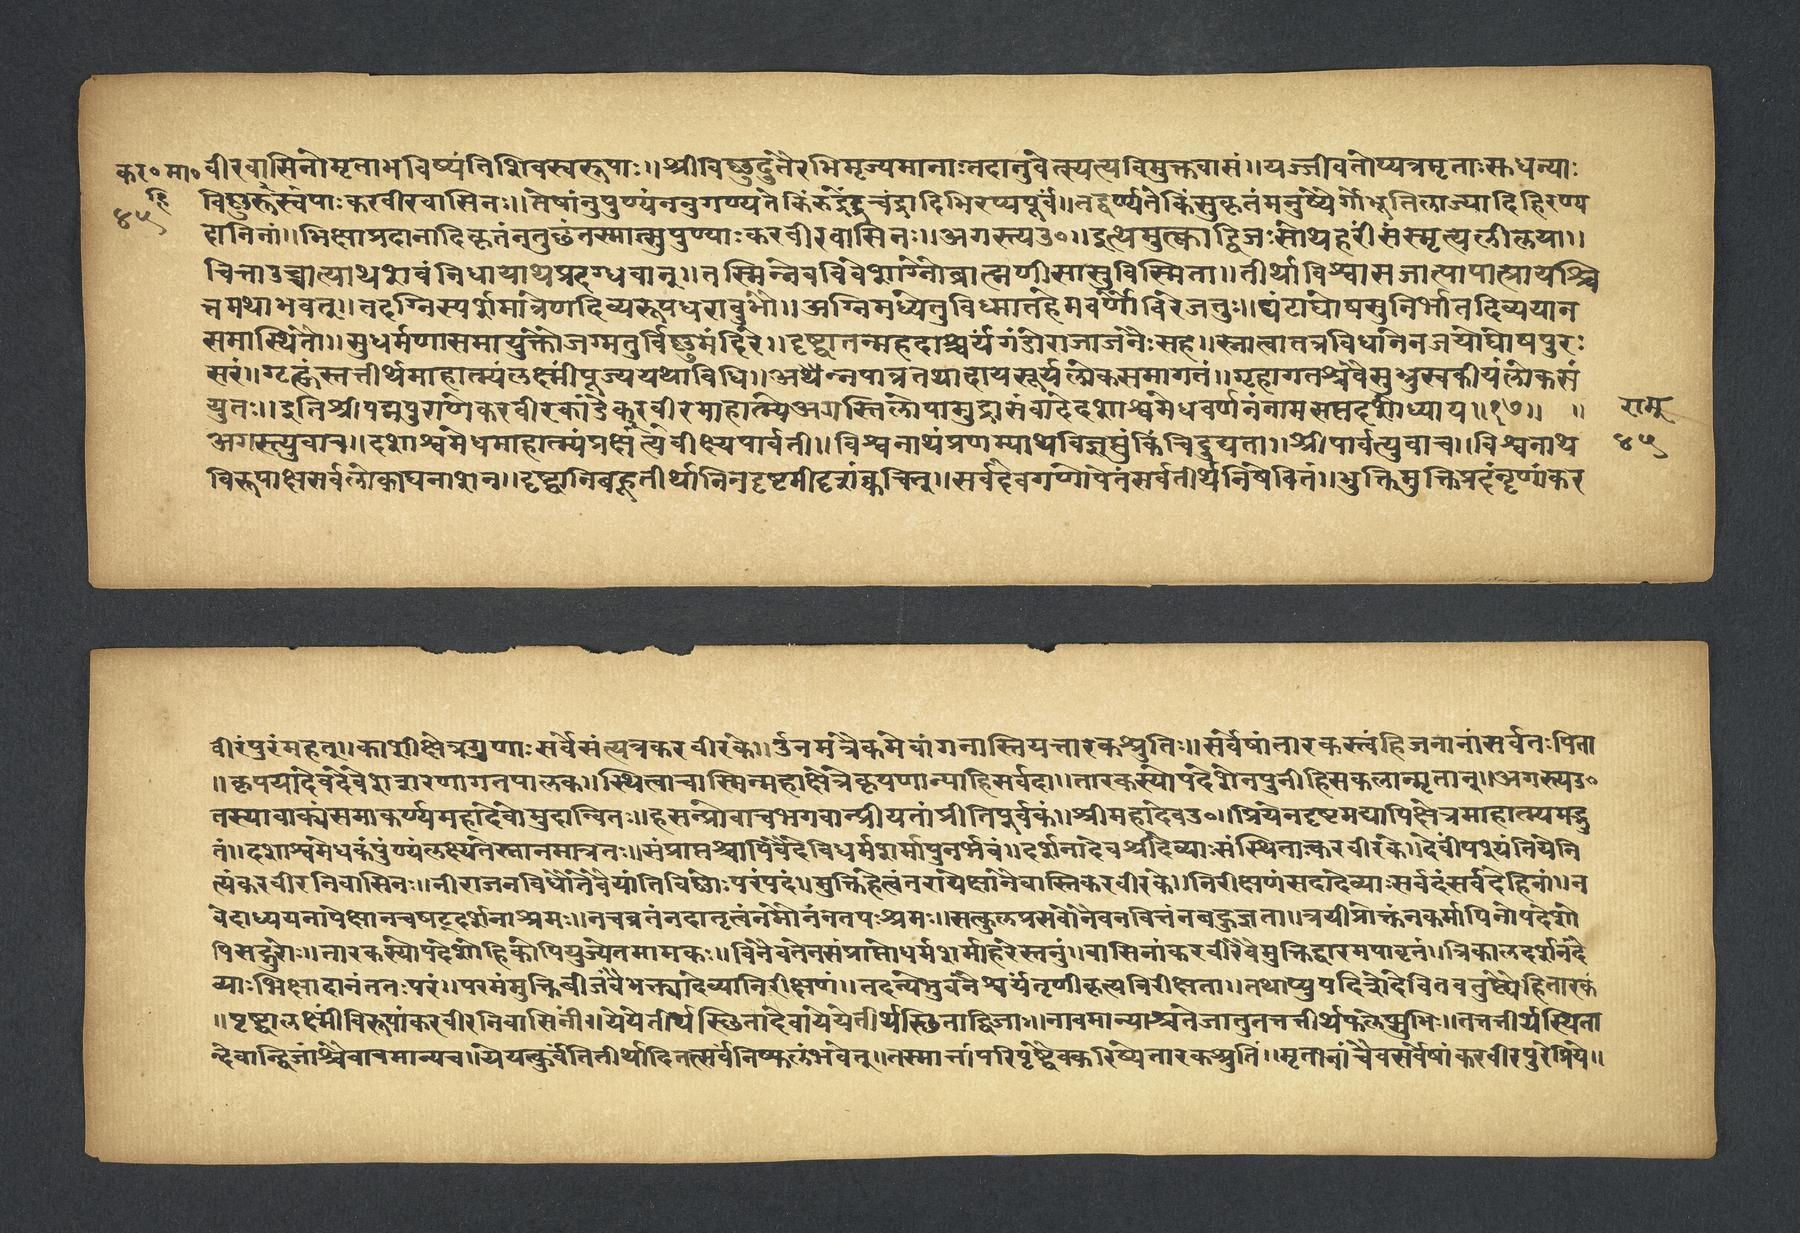 कर॰ मा॰ वीरवासिनोमृताभविष्यंतिशिवस्वरूपाः॥श्रीविष्णुदुतैरभिमृज्यमानाःतदातुवेत्स्यत्यविमुक्तवासं॥यज्जीवतोप्यत्रमृताःस्तधन्याः
हि
४५
विष्णुर्रूस्वपाःकरवीरवासिनः॥तेषांनुपुण्यंननुगण्यतेकिंरुद्रेंद्रचंद्रादिभिरप्यपूर्वं॥तद्वर्ण्यतेकिंसुकृतंमनुष्येर्गोभूतिलाज्यादिहिरण्य
दानिनां॥भिक्षाप्रदानादिकृतंनतुछंतस्मात्सुपुण्याःकरवीरवासिनः॥अगस्त्यउ॰॥इत्थमुत्काद्विजःसोथहरींसंस्मृत्यलीलया॥
चित्ताउच्चाल्याथशवंनिधायाथप्रदग्धवान्॥तस्मिन्नेवविवेशाग्नौब्राह्मणीसासुविस्मिता॥तीर्थाविश्वासजात्पापात्प्रायश्चि
त्तमथाभवत्॥तदग्निस्पर्शमात्रेणदिव्यरूपधरावुभौ॥अग्निमध्येतुविध्मातहेमवर्णौविरेजतुः॥घंटाघोषसुनिर्भातदिव्ययान
समास्थितौ॥सुधर्मेणासमायुक्तोजग्मतुर्विष्णुमंदिरं॥दृष्ट्वातन्महदाश्चर्यंगंडोराजाजनैःसह॥स्नात्वातत्रविधानेनजयोघोषपुरः
सरं॥गृह्णंस्ततीर्थमाहात्म्यंलक्ष्मींपूज्ययथाविधि॥अथैन्नपात्रतयादायसूर्यलोकसमागतं॥गृहागतश्चवैसुभ्रुस्वकीयंलोकसं
युतः॥इतिश्रीपद्मपुराणेकरवीरकांडेकरवीरमाहात्म्येअगस्तिलोपामुद्रासंवादेदशाश्वमेधवर्णनंनामसप्तदशोध्याय॥१७॥ ॥
अगस्त्युवाच॥दशाश्वमेधमाहात्म्यंप्रक्षेत्र्यंवीक्ष्यपार्वती॥विश्वनाथंप्रणम्याथविज्ञप्तुंकिंचिदुद्यता॥श्रीपार्वत्युवाच॥विश्वनाथ
विरूपाक्षसर्वलोकाघनाशन॥दृष्ट्वानिबहूतीर्थानिनदृष्टमीदृशंक्वचित्॥सर्वदेवगणोपेतंसर्वतीर्थनिषेवितं॥भुक्तिमुक्तिप्रदंनृणांकर
रामू
४५
वीरंपुरंमहत्॥काशीक्षेत्रगुणाःसर्वेसंत्यत्रकरवीरके॥र्तुनमंत्रैकमेवांगनास्तियत्तारकश्रुतिः॥सर्वेषांतारकस्त्वंहिजनानांसर्वतःपिता
॥कृपयादेवदेवेशशरणागतपालक॥स्थित्वाचास्मिन्महाक्षेत्रेकृपणान्पाहिसर्वदा॥तारकस्योपदेशेनपुनीहिसकलान्मृतान्॥अगस्त्यउ॰
तस्यावाक्यंसमाकर्ण्यमहादेवोमुदान्वितः॥हसन्प्रोवाचभगवान्प्रीयतांप्रीतिपूर्वकं॥श्रीमहादेवउ॰॥प्रियेनदृष्टमद्यापिक्षेत्रमाहात्म्यमद्भु
तं॥दशाश्वमेधकंपुण्यंलक्ष्यतेस्नानमात्रतः॥संप्राप्तश्चापिवैदेविधर्मशर्मापुनर्भवं॥दर्शनादेवश्रीदेव्याःसंस्थितात्करवीरके॥देवींपश्यंतियेनि
त्यंकरवीरनिवासिनः॥नीराजनविधौतेवैयांतिविष्णोःपरंपदं॥मुक्तिहेत्वंतरापेक्षानैवास्तिकरवीरके॥निरीक्षणंसदादेव्याःसर्वदंसर्वदेहिनां॥न
वेदाध्ययनापेक्षानचषट्दर्शनाश्रमः॥नचव्रतंनदातृत्वंनमौनंनतपःश्रमः॥सत्कुलप्रसवोनैवनवित्तंनबहुज्ञता॥त्रयीप्रोक्तंनकर्मापिनोपदेशो
पिसद्गुरोः॥तारकस्योपदेशोहिकोपियुज्येतमामकः॥विनैवतेनसंप्राप्तोधर्मशर्माहरेस्तनुं॥वासिनांकरवीरेवैमुक्तिद्वारमपावृतं॥त्रिकालदर्शनंदे
व्याःभिक्षादानंततःपरं॥परमंमुक्तिबीजंवैभक्त्यादेव्यानिरीक्षणं॥तदन्येभुवनैश्वर्यंतृणीकृत्यविरीक्षता॥तथाप्युपदिशेदेवितवतुष्ट्येहितारकं
॥पृष्ट्वालक्ष्मींविरूपांकरवीरनिवासिनीं॥येयेतीर्थस्छितादेवायेयेतीर्थस्छिताद्विजाः॥नावमान्याश्चतेजातुतत्तत्तीर्थफलेप्सुभिः॥तत्तत्तीर्थस्थिता
न्देवान्द्विजांश्चैवावमान्यच॥येयत्कुर्वंतितीर्थादितत्सर्वंनिष्फलंभवेत्॥तस्मात्तांपरिपृष्ट्वैवकरिष्येतारकश्रुतिं॥मृतानांचैवसर्वेषांकरवीरपुरेप्रिये॥